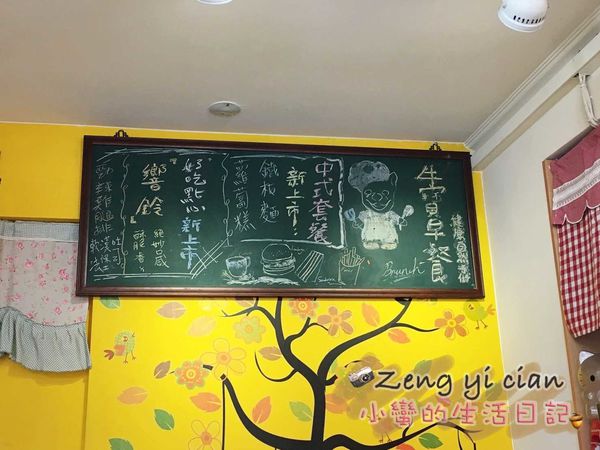 生寶早餐
Brunch
中式套餐
新上市!
鐵板麵
蘿蔔糕
好吃點心新上市
響鈴
酥脆香
絕妙口感
勁辣雞腿排漢堡
Zeng yi cian
小蠻的生活日記